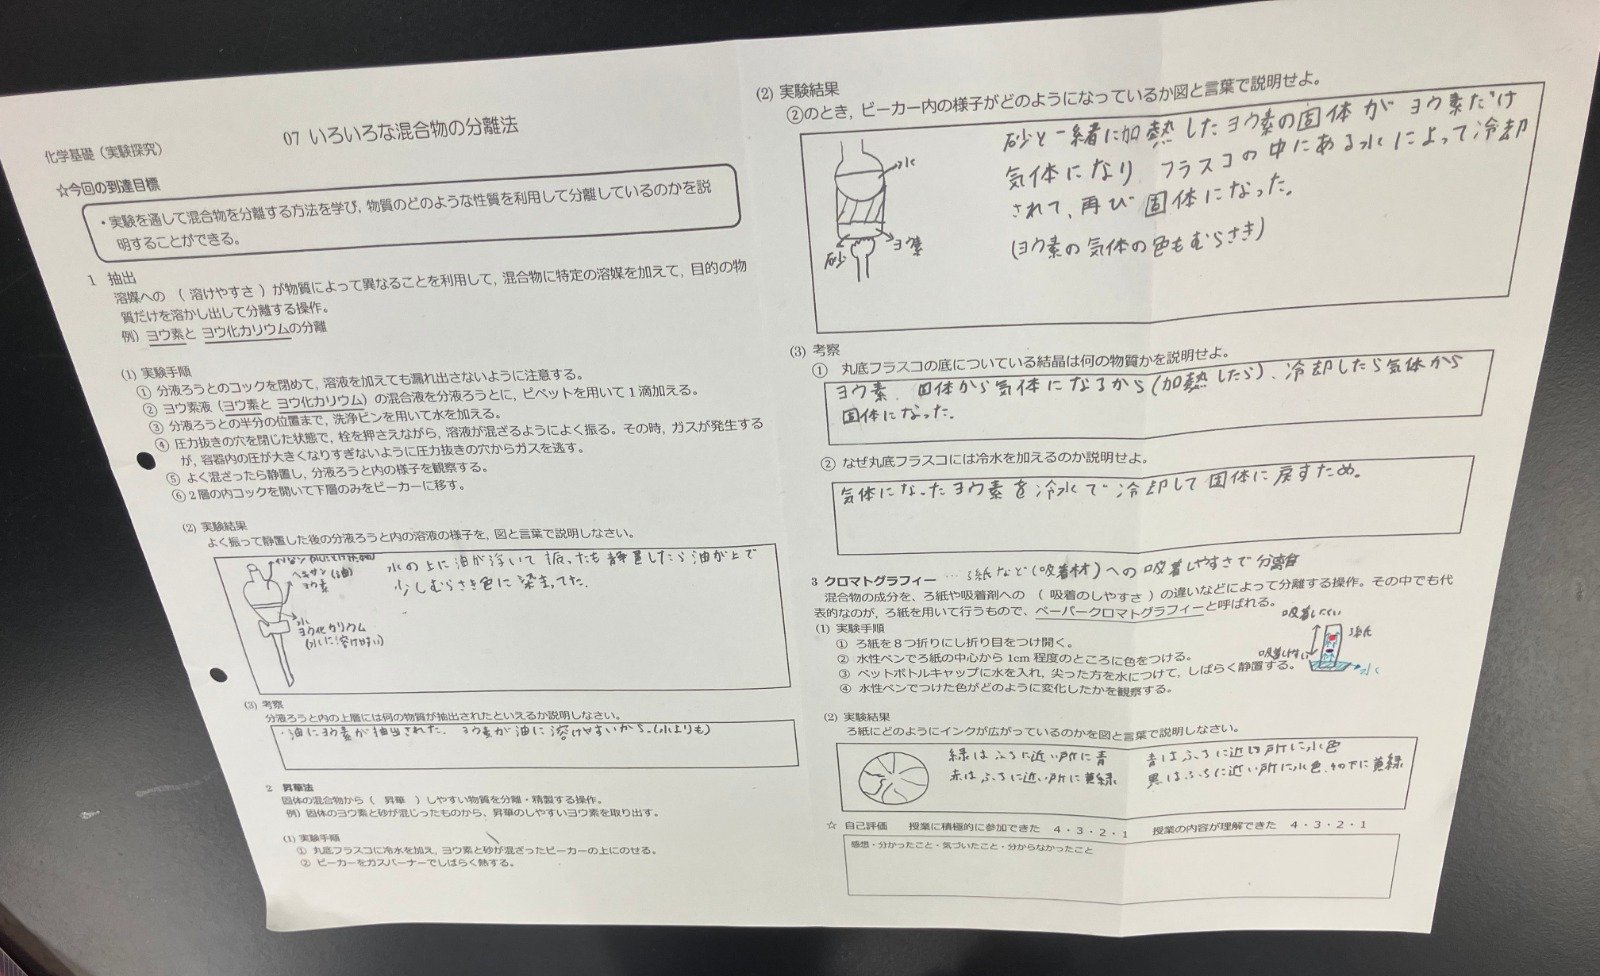 化学基礎（実験探究）
07 いろいろな混合物の分離法
☆今回の到達目標
・実験を通して混合物を分離する方法を学び, 物質のどのような性質を利用して分離しているのかを説
明することができる。
1 抽出
溶媒への （ 溶けやすさ ）が物質によって異なることを利用して, 混合物に特定の溶媒を加えて, 目的の物
質だけを溶かし出して分離する操作。
例）ヨウ素と ヨウ化カリウムの分離
(1) 実験手順
① 分液ろうとのコックを閉めて, 溶液を加えても漏れ出さないように注意する。
② ヨウ素液（ヨウ素と ヨウ化カリウム）の混合液を分液ろうとに, ピペットを用いて1滴加える。
③ 分液ろうとの半分の位置まで, 洗浄ビンを用いて水を加える。
④ 圧力抜きの穴を閉じた状態で, 栓を押さえながら, 溶液が混ざるようによく振る。その時, ガスが発生する
が, 容器内の圧が大きくなりすぎないように圧力抜きの穴からガスを逃す。
⑤ よく混ざったら静置し, 分液ろうと内の様子を観察する。
⑥ 2層の内コックを開いて下層のみをビーカーに移す。
(2) 実験結果
よく振って静置した後の分液ろうと内の溶液の様子を, 図と言葉で説明しなさい。
ヘキサン(油)
ヨウ素
水
ヨウ化カリウム
(水に溶けやすい)
水の上に油が浮いて 振っても静置したら油が上で
少しむらさき色に染まってた。
(3) 考察
分液ろうと内の上層には何の物質が抽出されたといえるか説明しなさい。
・油にヨウ素が抽出された。ヨウ素が油に溶けやすいから。(水よりも)
2 昇華法
固体の混合物から（ 昇華 ）しやすい物質を分離・精製する操作。
例）固体のヨウ素と砂が混じったものから, 昇華のしやすいヨウ素を取り出す。
(1) 実験手順
① 丸底フラスコに冷水を加え, ヨウ素と砂が混ざったビーカーの上にのせる。
② ビーカーをガスバーナーでしばらく熱する。
(2) 実験結果
②のとき, ビーカー内の様子がどのようになっているか図と言葉で説明せよ。
水
砂
ヨウ素
砂と一緒に加熱したヨウ素の固体が ヨウ素だけ
気体になり フラスコの中にある水によって冷却
されて、再び固体になった。
(ヨウ素の気体の色もむらさき)
(3) 考察
① 丸底フラスコの底についている結晶は何の物質かを説明せよ。
ヨウ素、固体から気体になるから(加熱したら)、冷却したら気体から
固体になった。
② なぜ丸底フラスコには冷水を加えるのか説明せよ。
気体になったヨウ素を冷水で冷却して固体に戻すため。
3 クロマトグラフィー …ろ紙など(吸着材)への吸着しやすさで分離
混合物の成分を、ろ紙や吸着剤への （ 吸着のしやすさ ）の違いなどによって分離する操作。その中でも代
表的なのが, ろ紙を用いて行うもので, ペーパークロマトグラフィーと呼ばれる。
(1) 実験手順
① ろ紙を8つ折りにし折り目をつけ開く。
② 水性ペンでろ紙の中心から1cm程度のところに色をつける。
③ ペットボトルキャップに水を入れ, 尖った方を水につけて, しばらく静置する。
④ 水性ペンでつけた色がどのように変化したかを観察する。
吸着しにくい
ろ紙
吸着しやすい
水
(2) 実験結果
ろ紙にどのようにインクが広がっているのかを図と言葉で説明しなさい。
緑はふちに近い所に青
青はふちに近い所に水色
赤はふちに近い所に黄緑
黒はふちに近い所に水色、
☆ 自己評価 授業に積極的に参加できた 4・3・2・1 授業の内容が理解できた 4・3・2・1
感想・分かったこと・気づいたこと・分からなかったこと